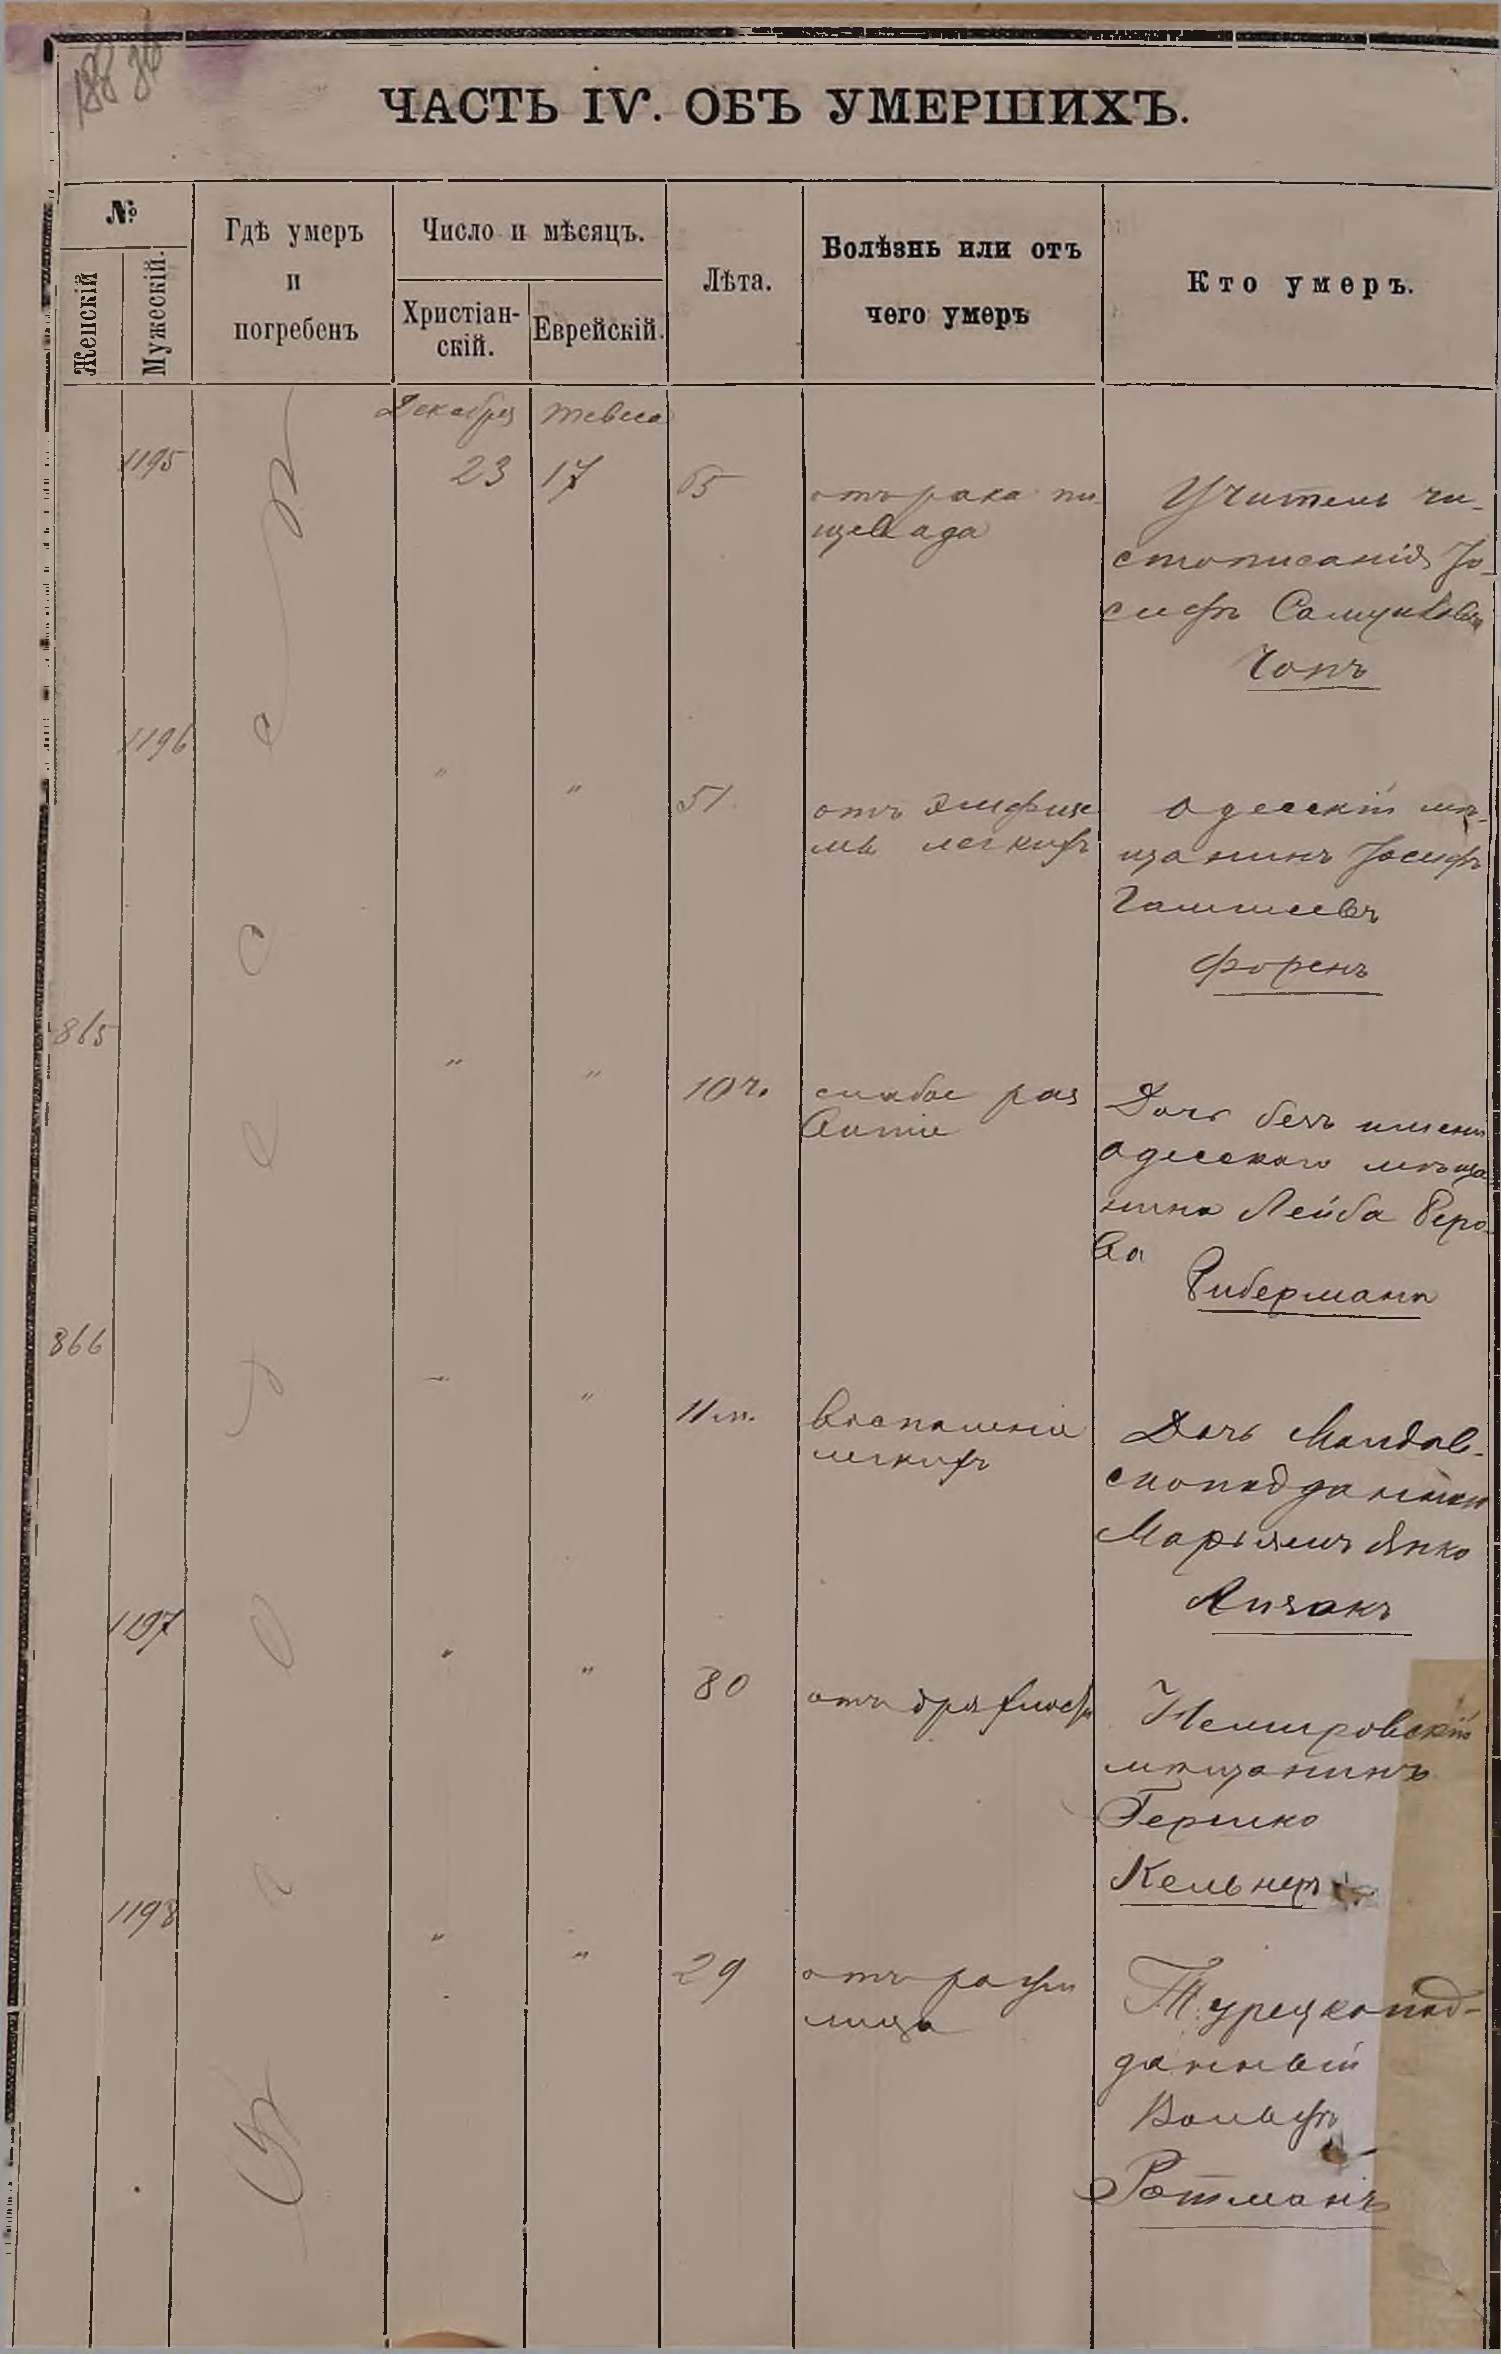 ЧАСТЬ IV. ОБЪ УМЕРШИХЪ.
№
Женскій
Мужескій.
Гдѣ умеръ
и
погребенъ
Число и мѣсяцъ.
Христіан-
скій.
Еврейскій.
Лѣта.
Болѣзнь или отъ
чего умеръ
Кто умеръ.
Декабря
тевеса
1195
23
17
65
отъ рака пи-
щевада
Учитель чи-
стописанія Іо-
сифъ
1196
"
"
51
отъ эмфизе
мы легкихъ
Одесскій мѣ-
щанинъ Іосифъ
Форенъ
865
"
"
10 ч.
слабое раз
витіе
Дочь безъ имени
одесскаго мѣща
нина Лейба Беро-
ва
Либермана
866
"
"
11 м.
Воспаленіе
легкихъ
Дочь Молдав-
скоподданнаго
1197
"
"
80
отъ дряхлости
Немировскій
мѣщанинъ
Гершко
Кельнеръ
1198
"
"
29
отъ рожи
лица
Турецкопод-
данный
Вольфъ
Ротманъ
Одесса